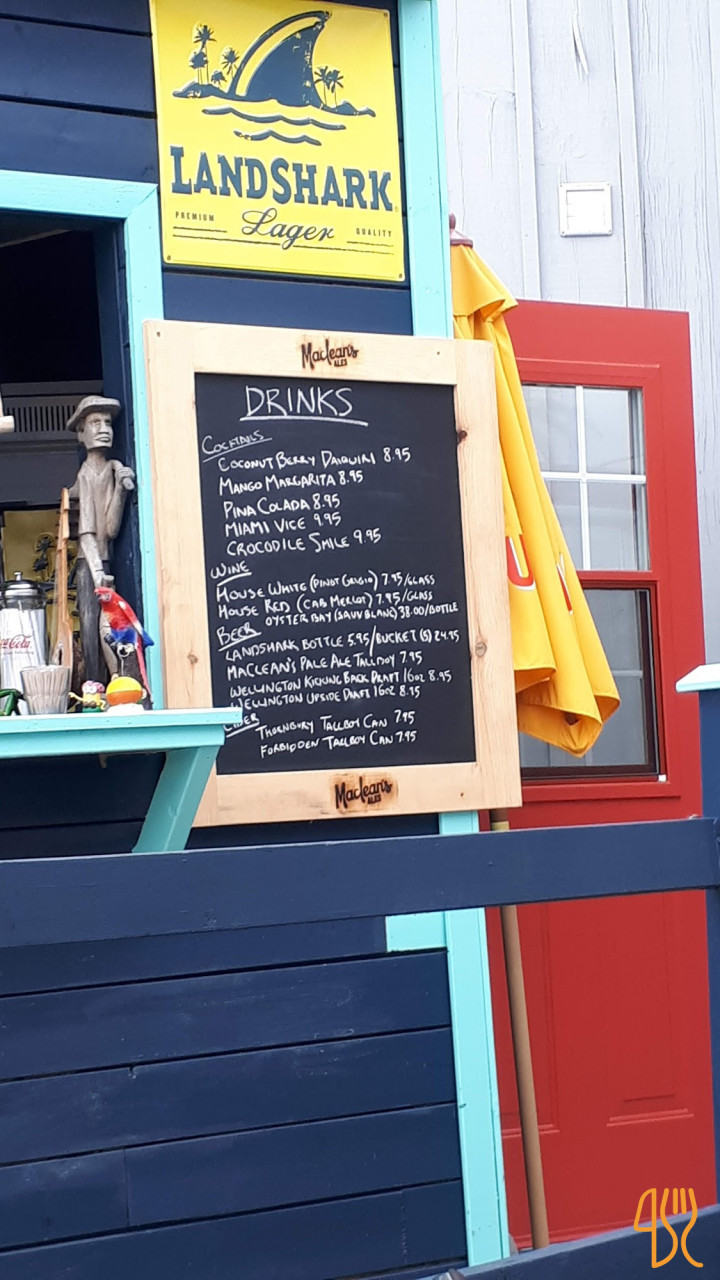 LANDSHARK
PREMIUM Lager QUALITY
Maclean's
ALES
DRINKS
COCKTAILS
COCONUT BERRY DAIQUIRI 8.95
MANGO MARGARITA 8.95
PINA COLADA 8.95
MIAMI VICE 9.95
CROCODILE SMILE 9.95
WINE
HOUSE WHITE (PINOT GRIGIO) 7.95/GLASS
HOUSE RED (CAB MERLOT) 7.95/GLASS
OYSTER BAY (SAUV BLANC) 38.00/BOTTLE
BEER
LANDSHARK BOTTLE 5.95/BUCKET (5) 24.95
MACLEAN'S PALE ALE TALLBOY 7.95
WELLINGTON KICKING BACK DRAFT 16oz 8.95
WELLINGTON UPSIDE DRAFT 16oz 8.95
CIDER
THORNBURY TALLBOY CAN 7.95
FORBIDDEN TALLBOY CAN 7.95
Maclean's
ALES
Coca-Cola